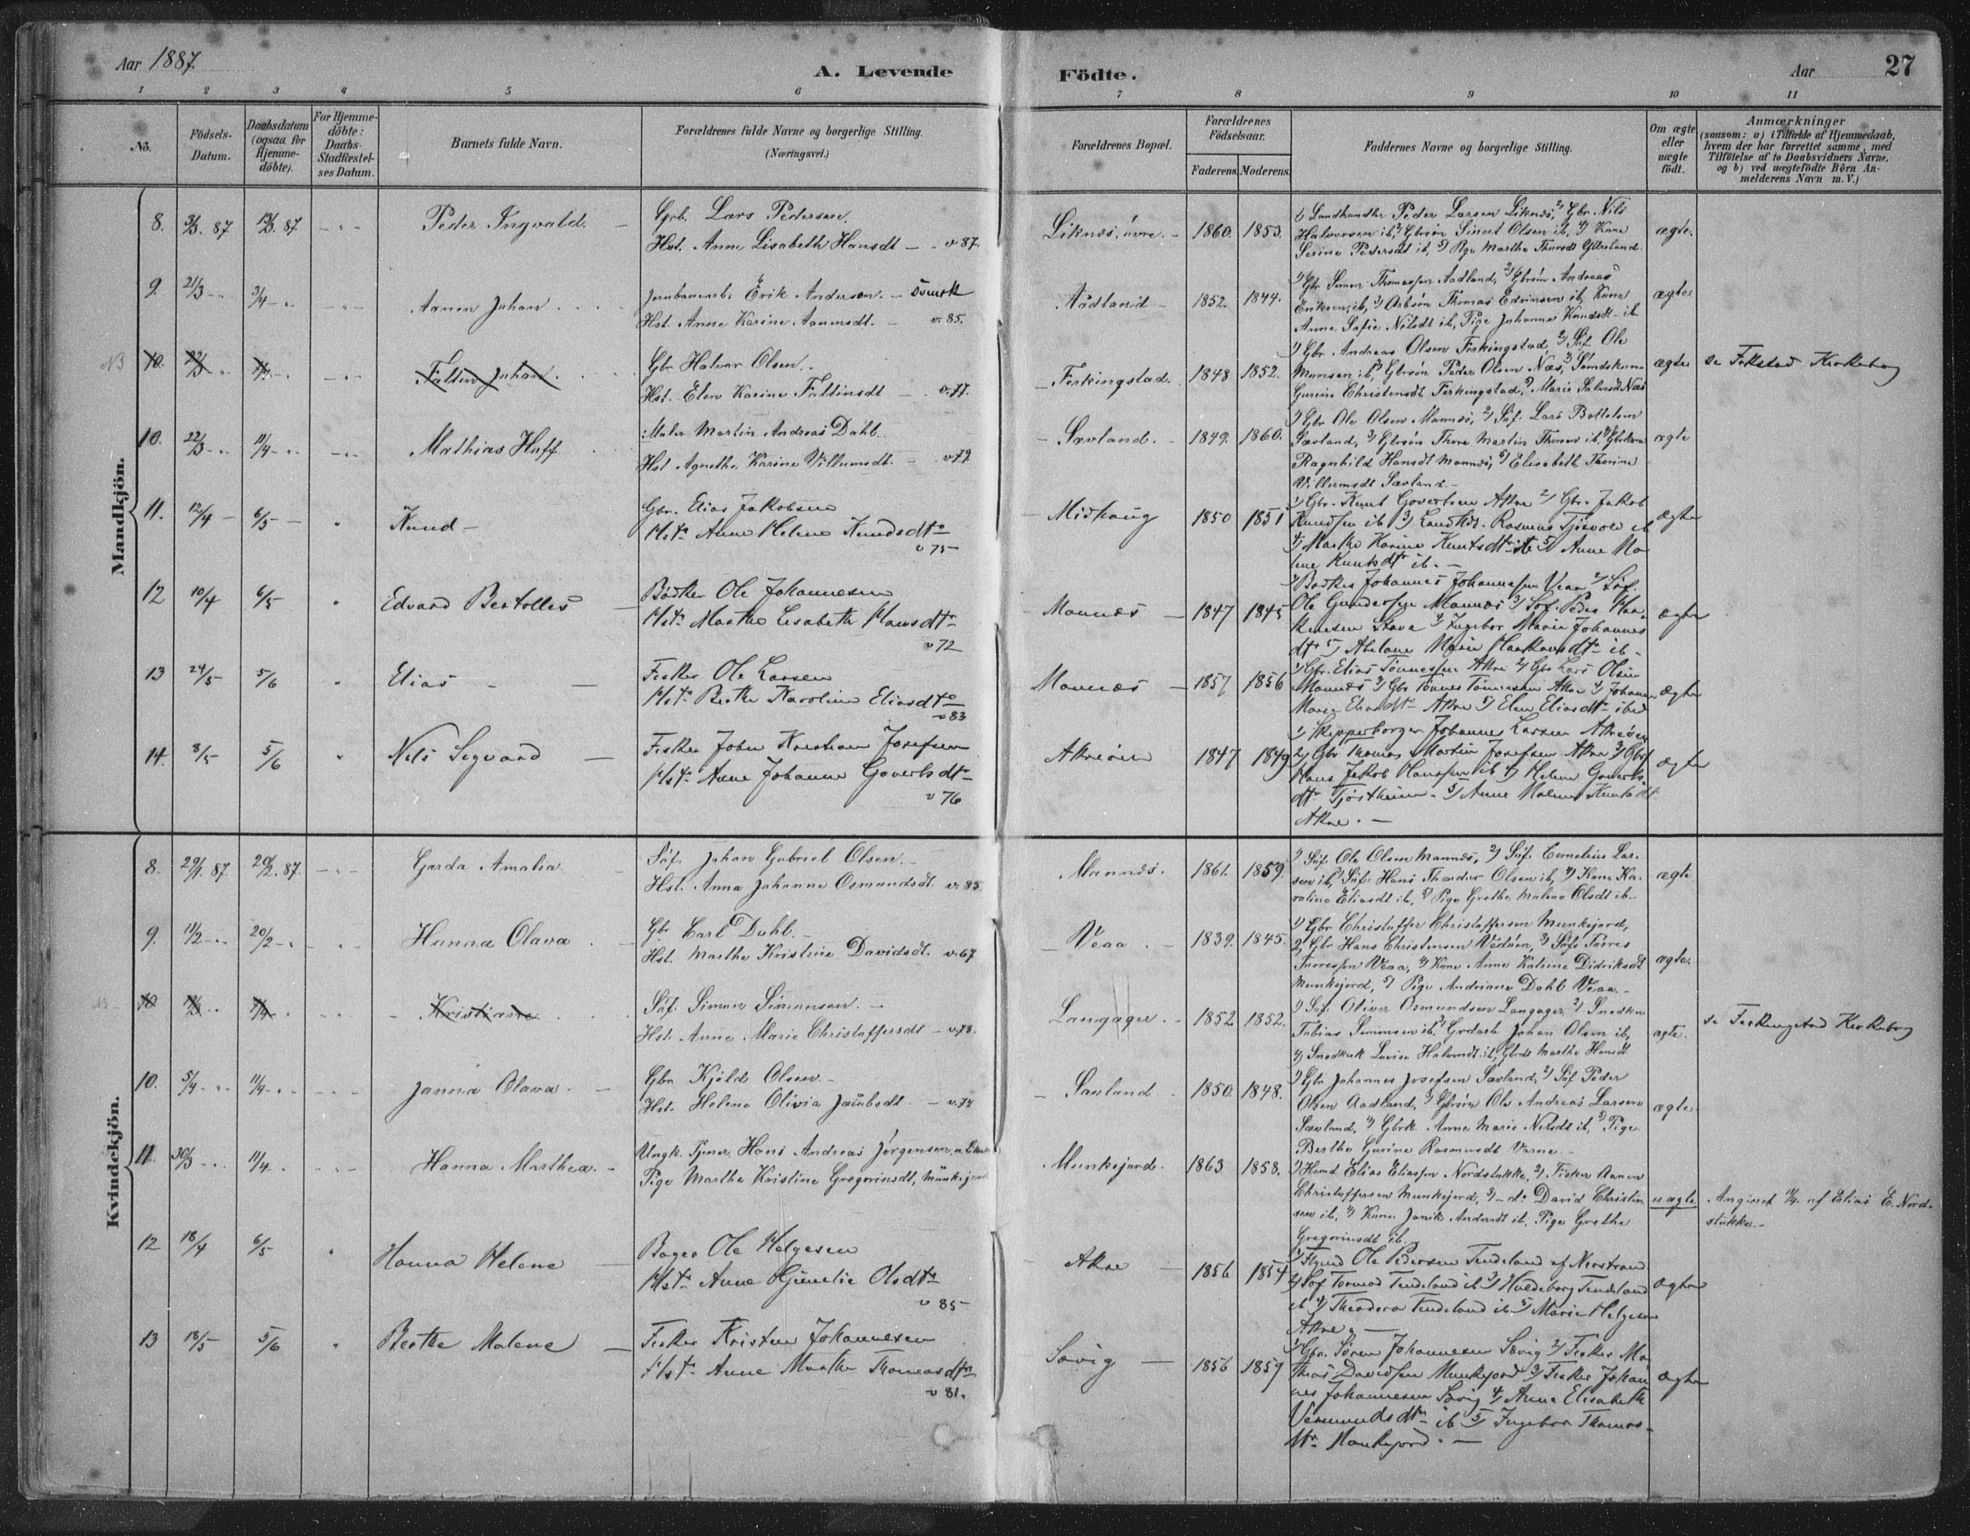 Aar 1887.
A. Levende Födte.
Aar 27
1 2 3 4 5 6 7 8 9 10 11
No.
Födsels-Datum.
Daabsdatum (ogsaa for Hjemmedöbte).
For Hjemmedöbte: Daabs-Stadfæstelses Datum.
Barnets fulde Navn.
Forældrenes fulde Navne og borgerlige Stilling. (Næringsvei.)
Forældrenes Bopæl.
Forældrenes Födselsaar.
Faderens. Moderens.
Faddernes Navne og borgerlige Stilling.
Om ægte eller uægte födt.
Anmærkninger
(saasom: a) i Tilfælde af Hjemmedaab, hvem der har forrettet samme, med Tilföielse af to Daabsvidners Navne, og b) ved uægtefödte Börn Anmelderens Navn m. V.)
Mandkjön.
8. 3/3. 87 13/3. 87 Peder Ingvald.
Gbr. Lars Pedersen.
Hst. Anne Lisabeth Hansdt - v. 87.
Liknæs, øvre. 1860. 1853.
1) Landhandler Peder Larsen Liknæs, 2) Gbr. Nils
Halvorsen ib, 3) Gbrsøn Sivert Olsen ib, 4) Kone
Serine Pedersdt ib, 5) Pge Marthe
ægte.
9. 21/3 3/4 Aanen Johan
Jernbanearb. Erik Andersen. - Svensk
Hst. Anne Karine Aanensdt. - v. 85.
Aadland - 1852. 1844.
1) Gbr Simon Thomassen Aadland, 2) Gbrsøn Andreas
Eriksen, ib, 3) Arbsøn Thomas Edvinsen ib, Kone
Anne Sofie Nilsdt ib, Pige Johanne Knudsdt ib
ægte
NB 10. 22/3 Faltin Johan.
Gbr Halvor Olsen.
Hst. Elen Karine Faltinsdt - v. 77.
Ferkingstad. 1848 1852.
1) Gbr. Andreas Olsen Ferkingstad, 2) Søf. Ole
Monsen ib, 3) Gbrsøn Peder Olsen Næs,
Gurine Christensdt Ferkingstad, 5) Marie Salvesdt Næs
ægte
se Kirkebog
10. 22/3 11/4 Mathias Hoff
Maler Martin Andreas Dahl.
Hst Agnethe Karine Villumsdt. - v. 79.
Sævland. 1849. 1860.
1) Gbr Ole Olsen Mannæs, 2) Søf. Lars Bottelsen
Sævland, 3) Gbrsøn Thore Martin Thoresen ib, 4) Gbrkone
Ragnhild Hansdt Mannæs, 5) Elisabeth Thorine
Villumsdt Sævland. -
ægte
11. 12/4 - 6/5 - Knud -
Gbr. Elias Jakobsen
Hst. Anne Helene Knudsdtr
v 75 -
Midhaug 1850 1851
1) Gbr. Knut Govertsen Akre 2) Gbr. Jakob
Knudsen ib 3) Landhdl. Rasmus Tjøsvold ib
4) Marthe Karine Knutsdtr ib 5) Anne Malene Knutsdtr ib. -
ægte
12 10/4 6/5 Edvard Bertolles
Bödker Ole Johannesen
Hst. Marthe Lisabeth Hansdtr
v 72
Mannæs - 1847 1845
1) Bødker Johannes Johannesen Veaa 2) Søf.
Ole Gundersen Mannæs 3) Søf. Peder Haakensen Stava 4) Ingebor Marie Johannesdtr 5) Abelone Marie Haakensdtr ib.
ægte
13 24/5 5/6 Elias -
Fisker Ole Larsen
Hst. Berthe Karoline Eliasdtr
v 83
Mannæs - 1857 1856
1) Gbr. Elias Tønnessen Akre 2) Gbr Lars Olsen
Mannæs 3) Gbr Tønnes Tønnesen Akre 4) Johanne
Marie Eliasdtr Akre 5) Elen Eliasdtr ibid
ægte
14. 8/5 5/6 Nils Segvard -
Fisker John Kristian Josefsen
Hst. Anne Johanne Govertsdtr
v 76
Akreøen 1847 1849
1) Skipperborger Johannes Larsen Akreøen
2) Gbr Tomas Martin Josefsen Akre 3) Gbr
Hans Jakob Hanssen ib 4) Helene Govertsdtr Tjøstheim. 5) Anne Malene Knutsdt
Akre. -
ægte
Kvindekjön.
8. 29/1. 87 20/2. 87. Gerda Amalia
Søf. Johan Gabriel Olsen. -
Hst. Anna Johanne Osmundsdt. v. 85
Mannæs. 1861. 1859.
1) Søf. Ole Olsen Mannæs, 2) Søf. Cornelius Larsen ib, 3) Søf. Hans Theodor Olsen ib, 4) Kone Karoline Eliasdt ib, 5) Pige Grethe Malene Olsdt ib.
ægte
9. 11/2 20/2 Hanna Olava
Gbr Carl Dahl. -
Hst. Marthe Kristine Davidsdt. v. 67
Veaa. 1839. 1845.
1) Gbr Christoffer Christoffersen Munkejord,
2) Gbr Hans Christensen Vedøen, 3) Søfs Torres
Torressen Veaa, 4) Kone Anne Katrine Didriksdt
Munkejord, 5) Pige Andriane Dahl Veaa. -
ægte.
NB 10 Kristiane
Søf. Simon Simonsen. -
Hst. Anne Marie Christoffersdt - v. 78.
Langager. 1852 1852.
1) Søf. Oliver Osmundsen Langager, 2) Snedker
Tobias Simonsen ib, 3) Johan Olsen ib,
4) Lovise Halvorsdt ib, Marthe Hansdt
ægte.
se Ferkingstad Kirkebog
10. 5/4 11/4 Janna Olava.
Gbr Kjeld Olsen -
Hst. Helene Olivia Jacobsdt. - v. 74
Sævland 1850. 1848.
1) Gbr Johannes Josefsen Sævland, 2) Søf Peder
Olsen Aadland, 3) Gbrsøn Ole Andreas Larsen
Sævland, 4) Gbrk Anne Marie Nilsdt ib, 5) Pige
Berthe Gurine Rasmusdt Varne -
ægte
11. 30/3 11/4 Hanna Marthea. -
Ungk. Tjener Hans Andreas Jørgensen,
Pige Marthe Kristine Gregoriusdt, Munkejord
Munkejord. 1863 1858.
1) Hmd Elias Eliassen Nordstokke, 2) Fisker Aanen
Christoffersen Munkejord, 3) - do David Christensen ib, 4) Kone Janik Andersdt ib, Pige Grethe
Gregoriusdt ib.
uægte
Angivet af Elias E. Nordstokke. -
12 18/4 6/5 Hanna Helene
Bager Ole Helgesen
Hst. Anne Gunelie Olsdtr
v 85 -
Akre - 1856 1854
1) Ole Pedersen Tendeland af Nerstrand
2) Søf Tormod Tendeland ib 3) Huldeborg Tendeland
ib 4) Theodora Tendeland ib 5) Marie Helgesen
Akre. -
ægte
13 13/5 5/6 Berthe Malene -
Fisker Kristen Johannesen
Hst. Anne Marthe Thomasdtr
v 81.
Sævig - 1856 1859
1) Gbr. Søren Johannesen Sævig 2) Fisker Mathias Davidsen Munkejord 3) Fisker Johannes Johannesen Sævig 4) Anne Elisabeth
Vermundsdtr ib 5) Ingebor Thomasdtr Munkejord. -
ægte